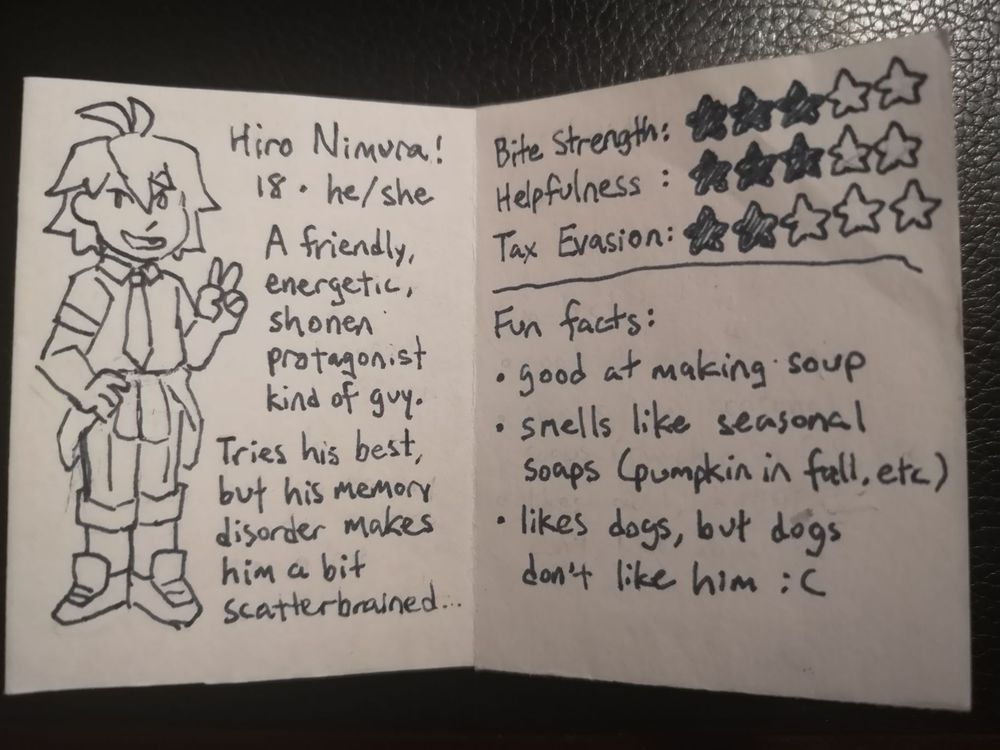 Hiro Nimura!
18 · he/she
A friendly,
energetic,
shonen
protagonist
kind of guy.
Tries his best,
but his memory
disorder makes
him a bit
scatterbrained...
Bite Strength: ★★★☆☆
Helpfulness : ★★★☆☆
Tax Evasion: ★★☆☆☆
Fun facts:
• good at making soup
• smells like seasonal
soaps (pumpkin in fall, etc)
• likes dogs, but dogs
don't like him :C